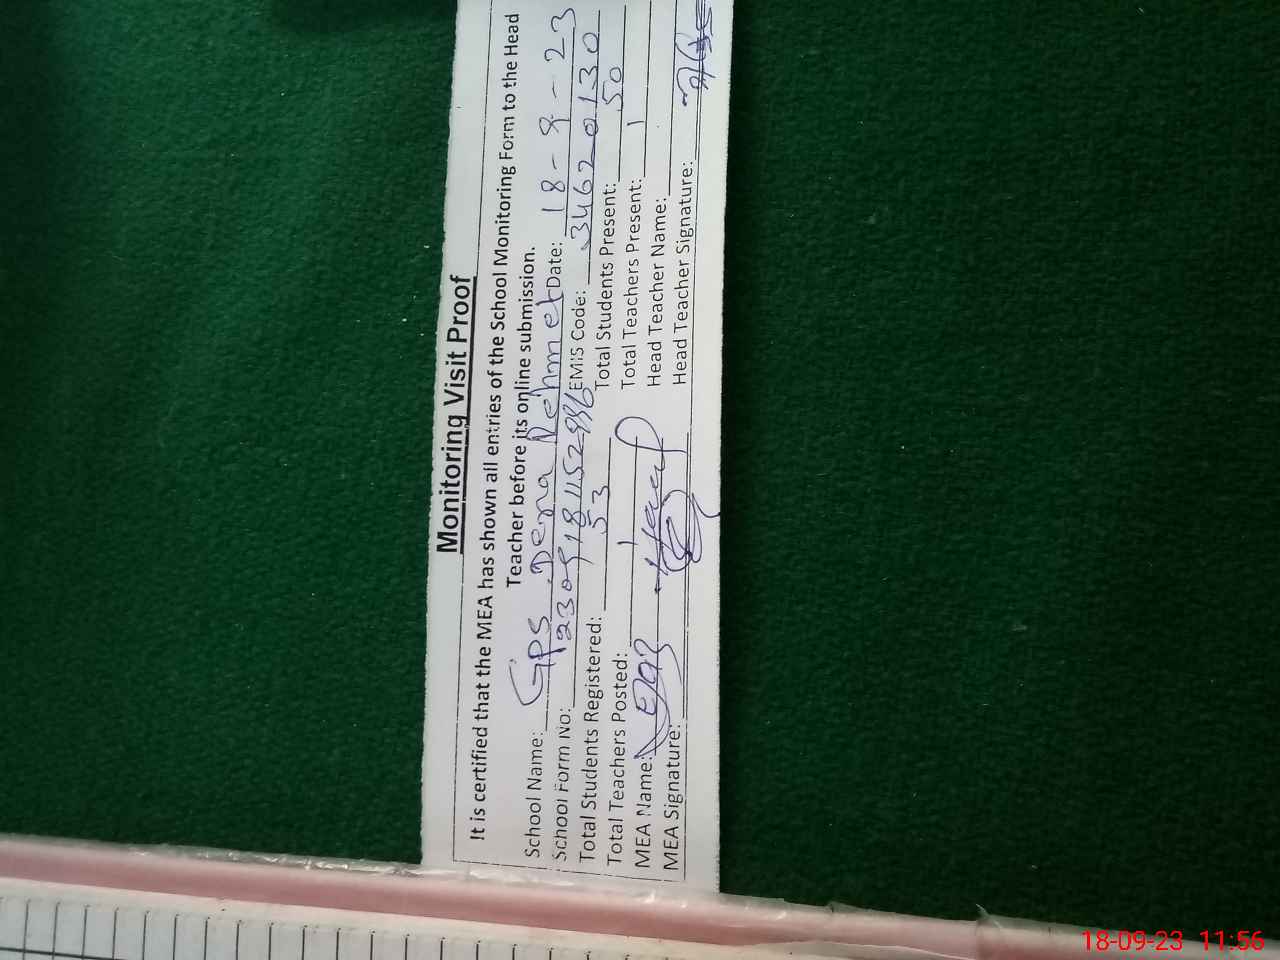 Monitoring Visit Proof
It is certified that the MEA has shown all entries of the School Monitoring Form to the Head
Teacher before its online submission.
School Name: GPS Dera Rehmet Date: 18-9-23
School Form No: EMIS Code: 34620130
Total Students Registered: 53 Total Students Present: 50
Total Teachers Posted: 1 Total Teachers Present: 1
MEA Name: Head Teacher Name:
MEA Signature: Head Teacher Signature:
18-09-23 11:56